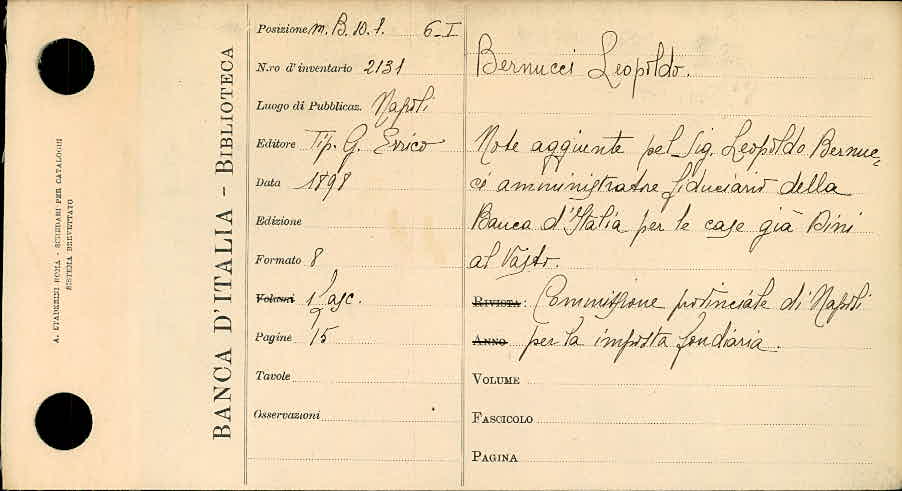 A. STADERINI ROMA - SCHEDARI PER CATALOGHI
SISTEMA BREVETTATO
BANCA D'ITALIA - BIBLIOTECA
Posizione m. B. 10. 1. 6-I
N.ro d'inventario 2131
Luogo di Pubblicaz. Napoli
Editore Tip. G. Errico
Data 1898
Edizione
Formato 8
Volumi 1 fasc.
Pagine 15
Tavole
Osservazioni
Bernucci Leopoldo.
Note aggiunte pel Sig. Leopoldo Bernuc-
ci amministratore fiduciario della
Banca d'Italia per le case già Bini
al Vasto.
RIVISTA: Commissione provinciale di Napoli
ANNO per la imposta fondiaria.
VOLUME
FASCICOLO
PAGINA